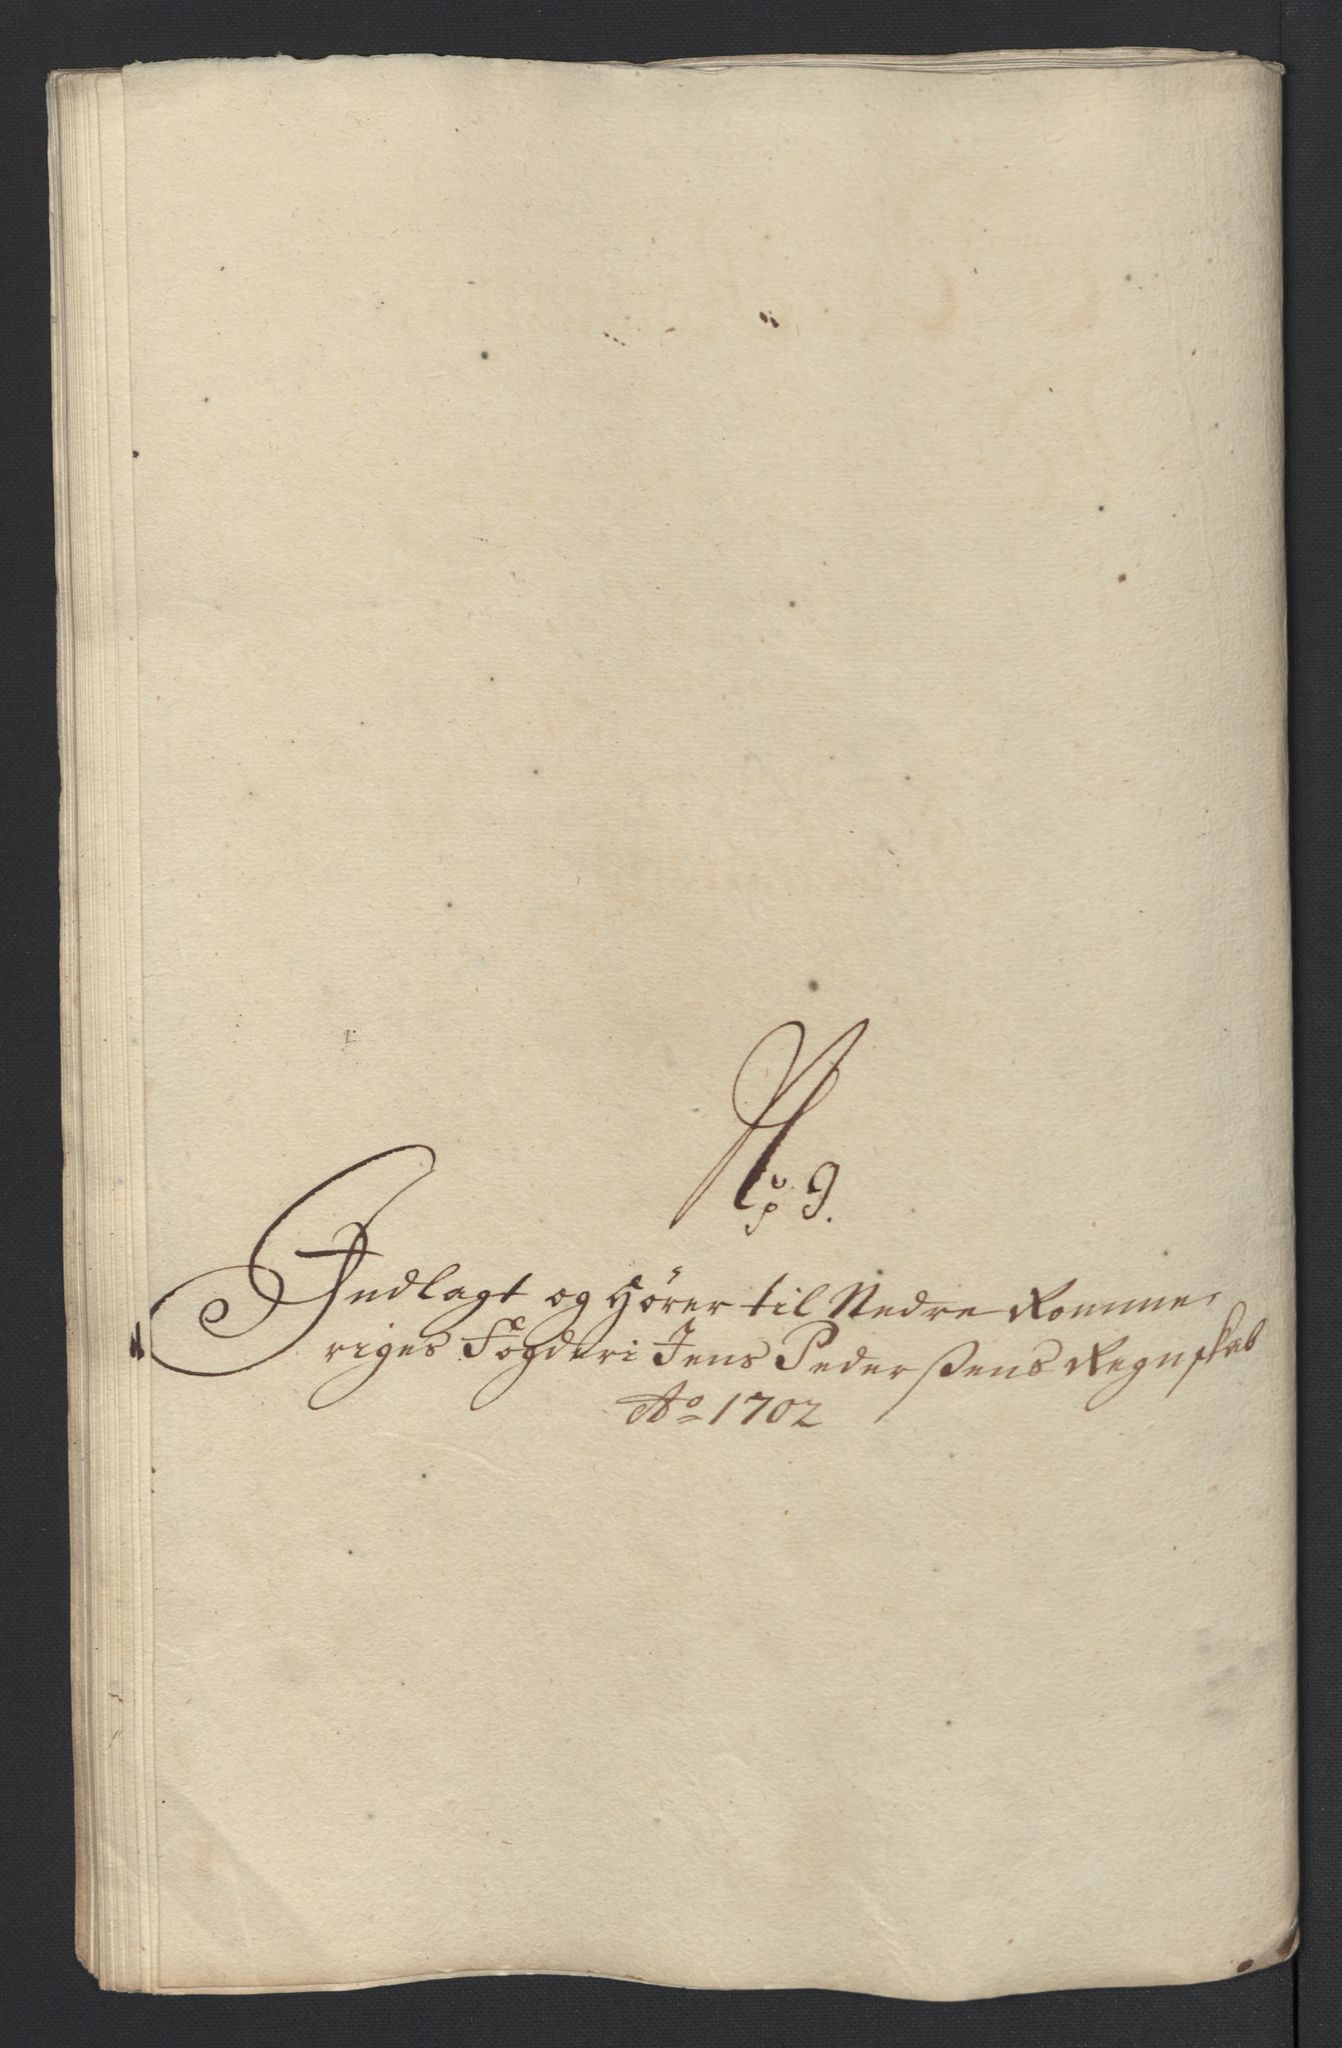 No 9.
Indlagt og Hörer til Nedre Romme,
riges Fogderi Jens Pederßens Regnskab
Ao 1702